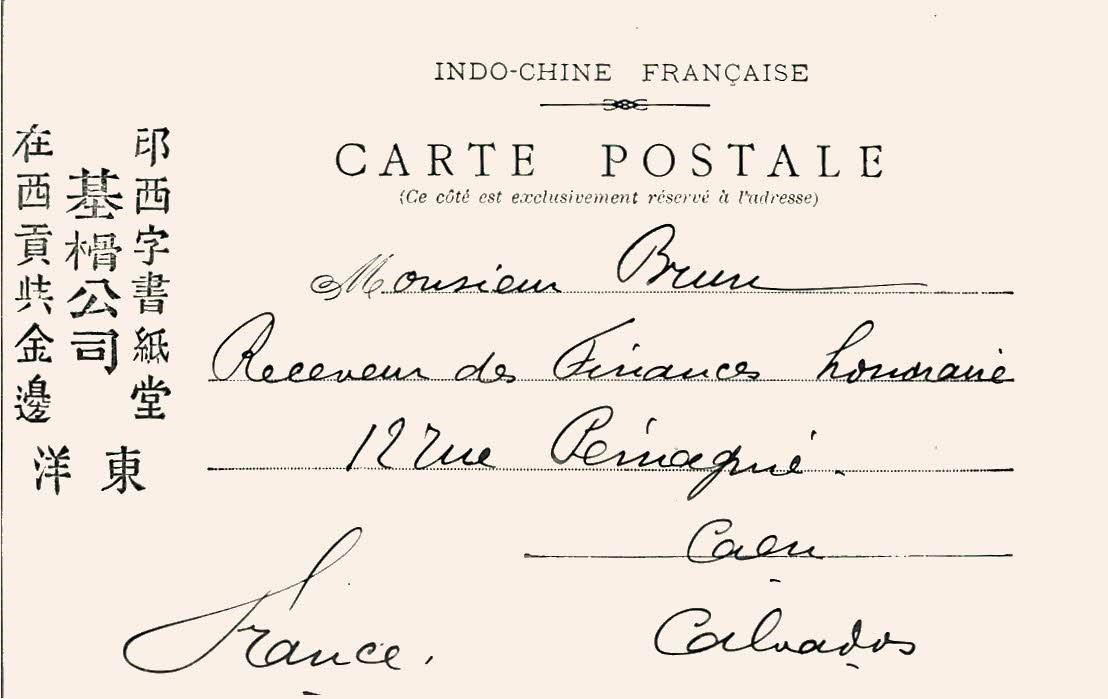 INDO-CHINE FRANÇAISE
CARTE POSTALE
(Ce côté est exclusivement réservé à l'adresse)
印西字書紙堂
基公司
在西貢金邊
東洋
Monsieur Brun
Receveur des Finances honoraire
12 rue Pémagnie.
Caen
Calvados
France.